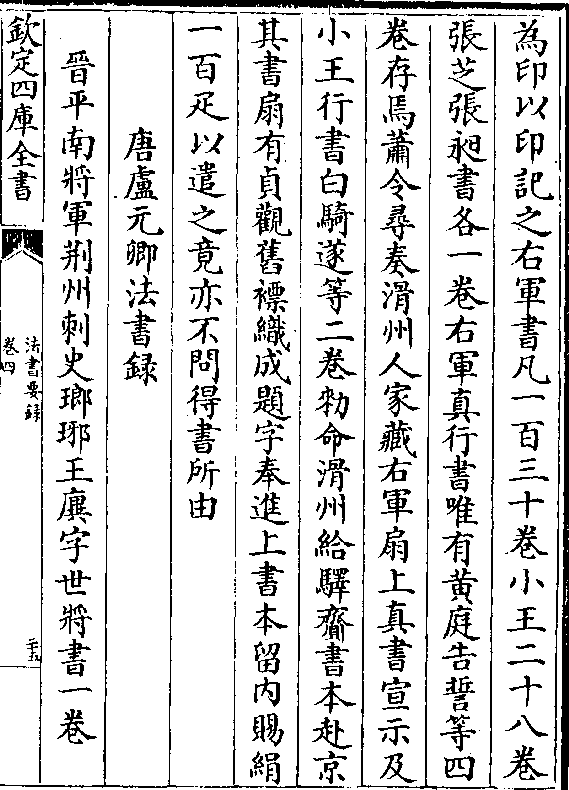 為印以印記之右軍書凡一百三十卷小王二十八卷
張芝張昶書各一卷右軍真行書唯有黃庭告誓等四
卷存焉蕭令尋奏滑州人家藏右軍扇上真書宣示及
小王行書白騎遂等二卷勑命滑州給驛齎書本赴京
其書扇有貞觀舊褾織成題字奉進上書本留內賜絹
一百疋以遣之竟亦不問得書所由
唐盧元卿法書録
晉平南將軍荆州刺史瑯琊王廙字世將書一卷
欽定四庫全書
法書要録
卷四
二十九